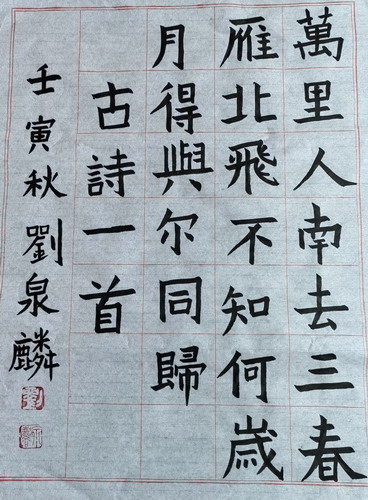 萬里人南去三春
雁北飛不知何歲
月得與尔同歸
古詩一首
壬寅秋劉泉麟